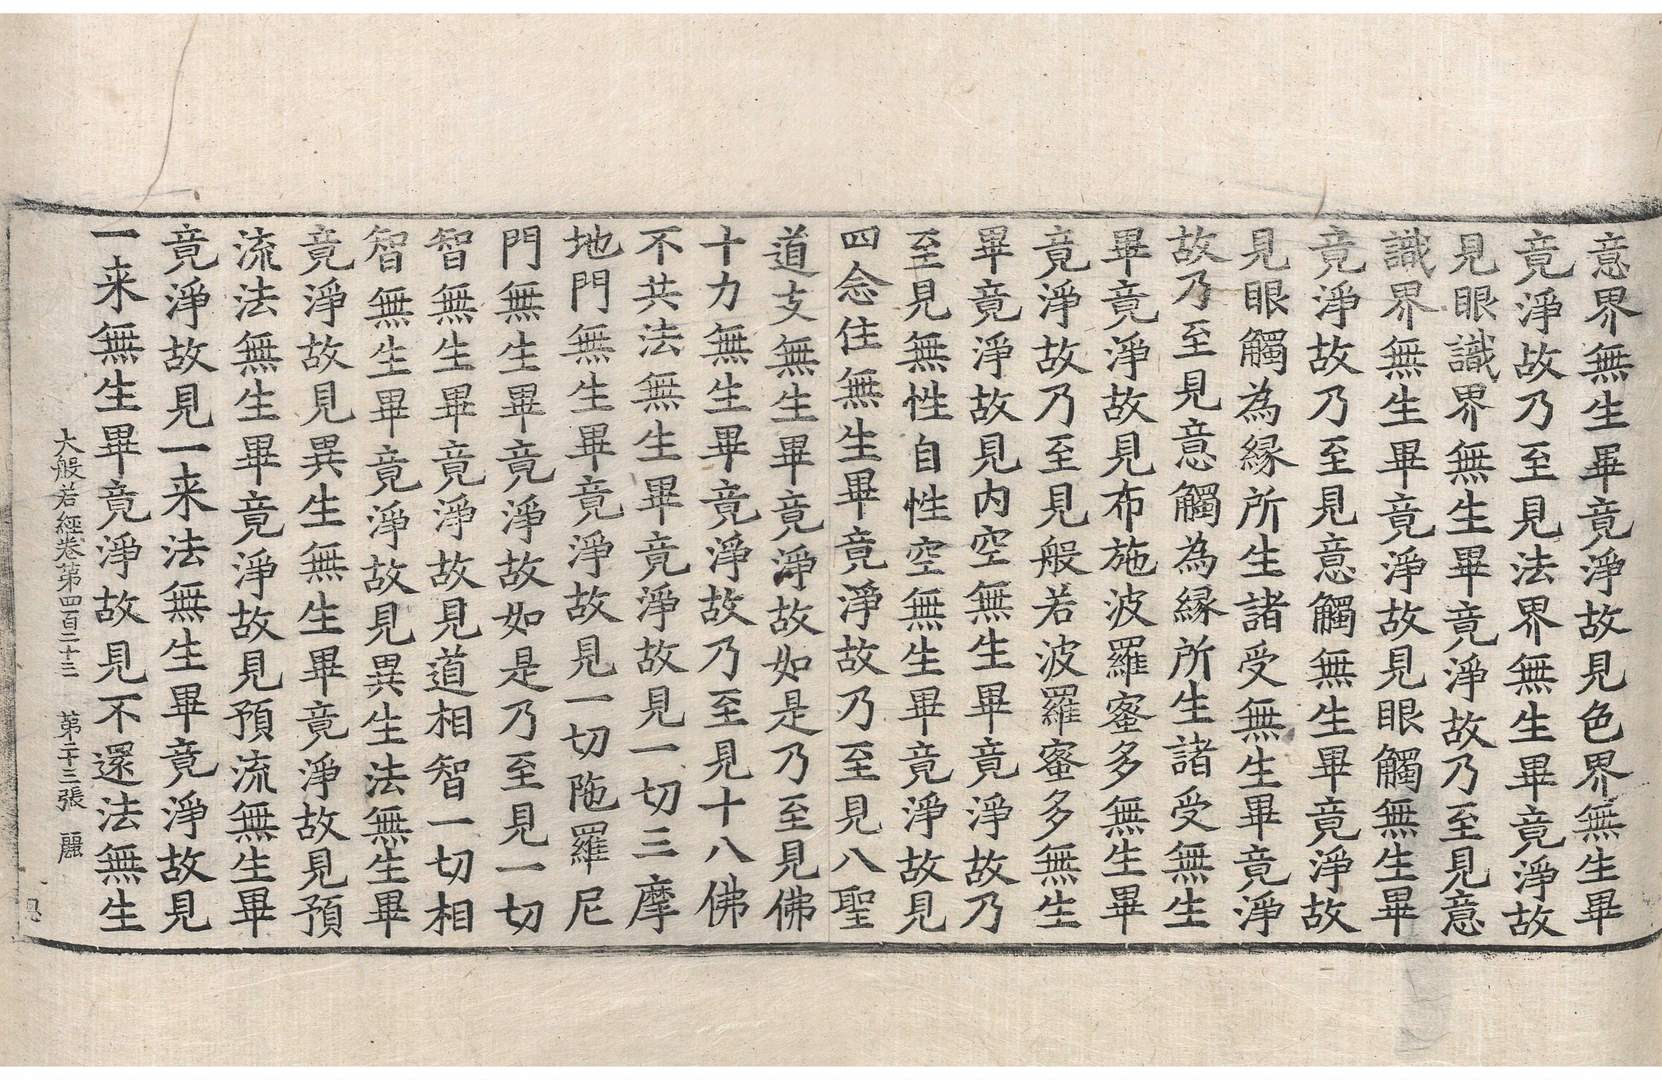 意界無生畢竟淨故見色界無生畢
竟淨故乃至見法界無生畢竟淨故
見眼識界無生畢竟淨故乃至見意
識界無生畢竟淨故見眼觸無生畢
竟淨故乃至見意觸無生畢竟淨故
見眼觸為緣所生諸受無生畢竟淨
故乃至見意觸為緣所生諸受無生
畢竟淨故見布施波羅蜜多無生畢
竟淨故乃至見般若波羅蜜多無生
畢竟淨故見内空無生畢竟淨故乃
至見無性自性空無生畢竟淨故見
四念住無生畢竟淨故乃至見八聖
道支無生畢竟淨故如是乃至見佛
十力無生畢竟淨故乃至見十八佛
不共法無生畢竟淨故見一切三摩
地門無生畢竟淨故見一切陁羅尼
門無生畢竟淨故如是乃至見一切
智無生畢竟淨故見道相智一切相
智無生畢竟淨故見異生法無生畢
竟淨故見異生無生畢竟淨故見預
流法無生畢竟淨故見預流無生畢
竟淨故見一来法無生畢竟淨故見
一来無生畢竟淨故見不還法無生
大般若經卷第四百二十三 第二十三張 麗